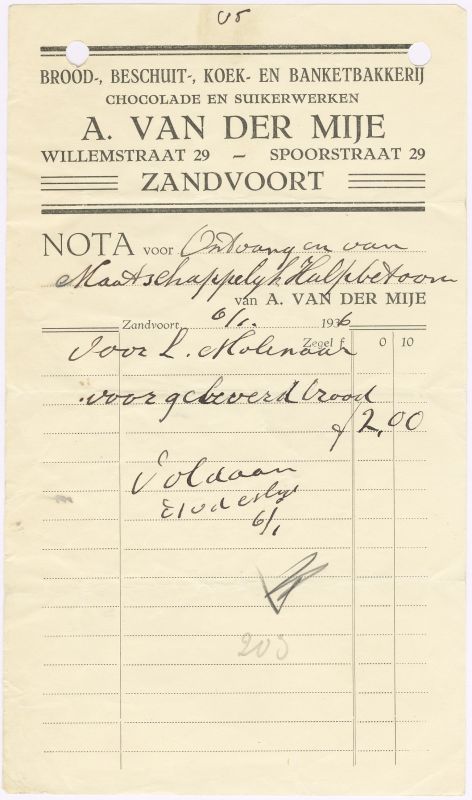 BROOD-, BESCHUIT-, KOEK- EN BANKETBAKKERIJ
CHOCOLADE EN SUIKERWERKEN
A. VAN DER MIJE
WILLEMSTRAAT 29 — SPOORSTRAAT 29
ZANDVOORT
NOTA voor Ontvangen van
Maatschappelijk Hulpbetoon
van A. VAN DER MIJE
Zandvoort 6/1. 1936
Zegel f 0 10
voor L. Molenaar
voor geleverd brood
f 2,00
Voldaan
6/1
203